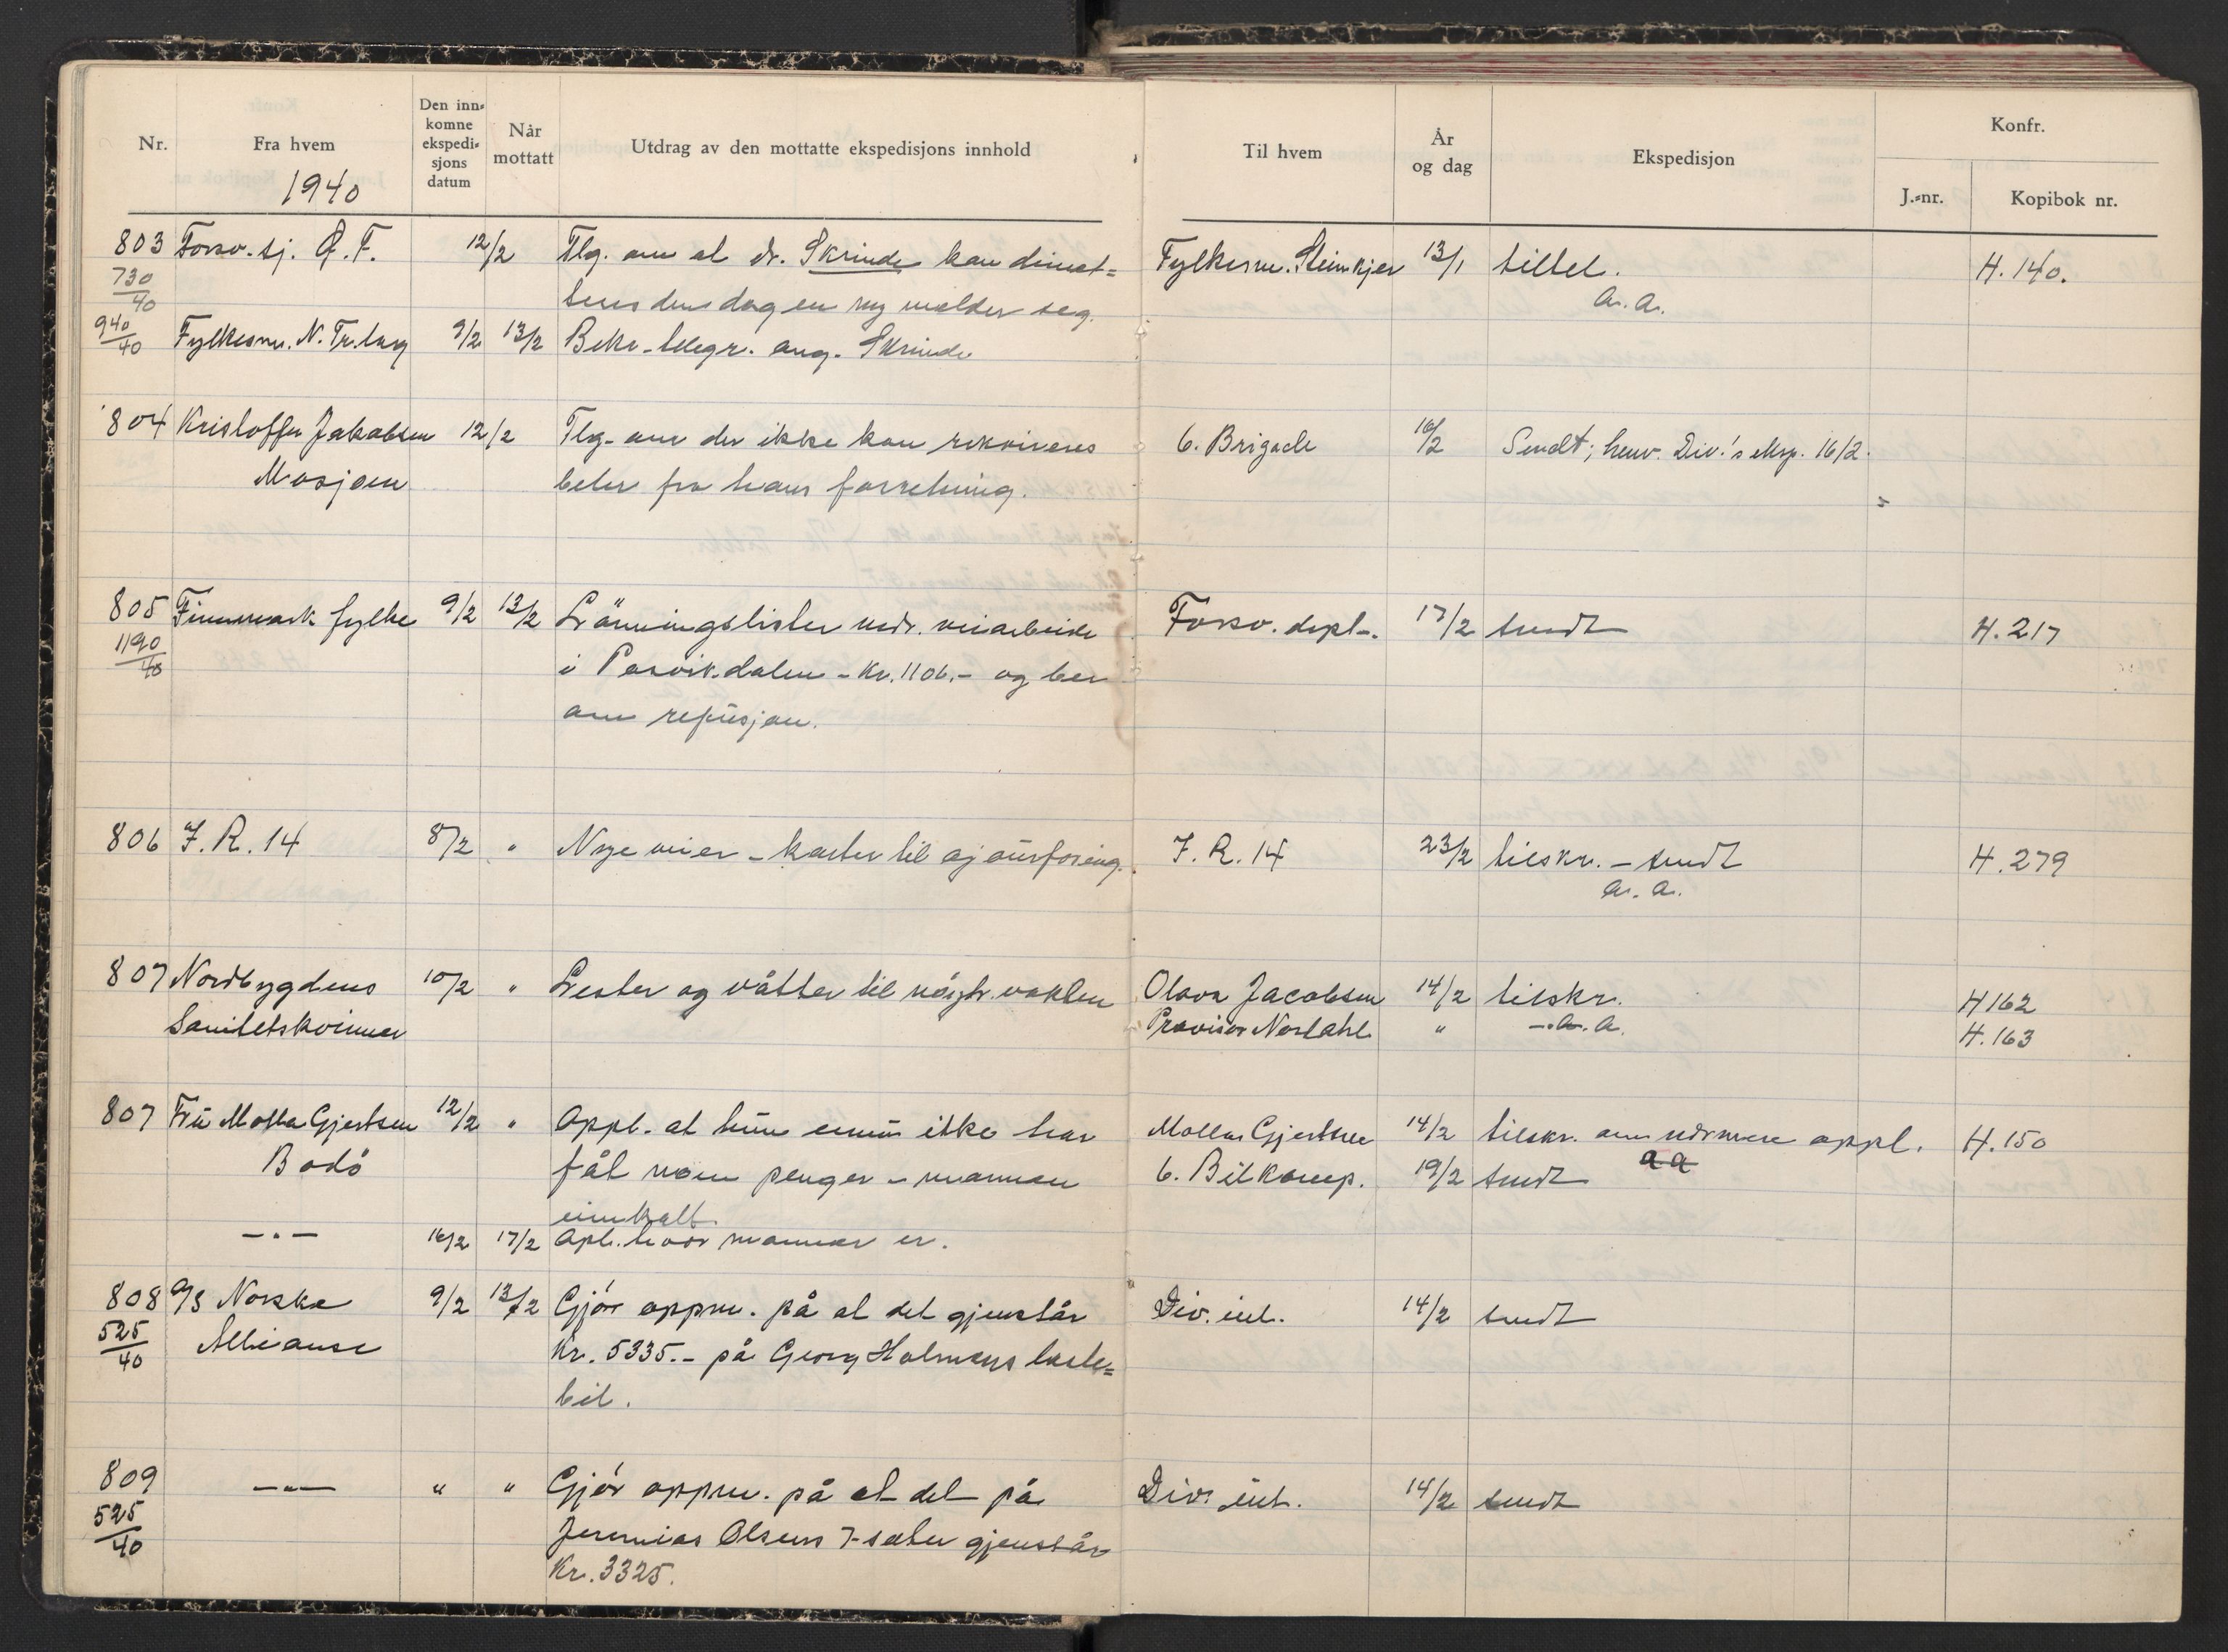 Nr. Fra hvem Den inn-komne ekspedi-sjons datum Når mottatt Utdrag av den mottatte ekspedisjons innhold Til hvem År og dag Ekspedisjon Konfr. J.-nr. Kopibok nr.
1940
803 Forsv. sj. 12/2 Tlg. om at dr. Skrinde kan dimit= Fylkesm. Steinkjer 13/1 tiltel. H. 140.
730/40 teres den dag en ny melder seg. a. a.
940/40 Fylkesm. N. Tr.lag 9/2 13/2 Bekr. telegr. ang. Skrinde
804 Kristoffer Jakobsen 12/2 Tlg. om der ikke kan rekvireres 6. Brigade 16/2 Sendt; henv. Div.'s eksp. 16/2.
Mosjøen biler fra hans forretning.
805 Finnmark fylke 9/2 13/2 Lønningslister vedr. veiarbeide Forsv. dept. 17/2 sendt H. 217
1190/40 i Pasvikdalen - Kr. 1106.- og ber
om refusjon.
806 I. R. 14 8/2 " Nye veier - karter til ajourføring. I. R. 14 23/2 tilskr. - sendt H. 279
a. a.
807 Nordbygdens 10/2 " Lester og våtter til nøytr. vakten Olava Jacobsen 14/2 tilskr. H 162
Sanitetskvinner Provisor Nordahl " -. a. a. H. 163
807 Fru Molla Gjertsen 12/2 " Oppl. at hun ennu ikke har Molla Gjertsen 14/2 tilskr. om nærmere oppl. H. 150
Bodö fåt noen penger - mannen 6. Bilkomp. 19/2 sendt aa
innkalt.
— " — 16/2 17/2 Opl. hvor mannen er.
808 A/S Norske 9/2 13/2 Gjör oppm. på at det gjenstår Div. int. 14/2 sendt
525/40 Allianse Kr. 5335.- på Georg Holmens laste=
bil.
809 — " — " " Gjör oppm. på at det på Div. int. 14/2 sendt
525/40 Jeremias Olsens 7-seter gjenstår
Kr. 3325.